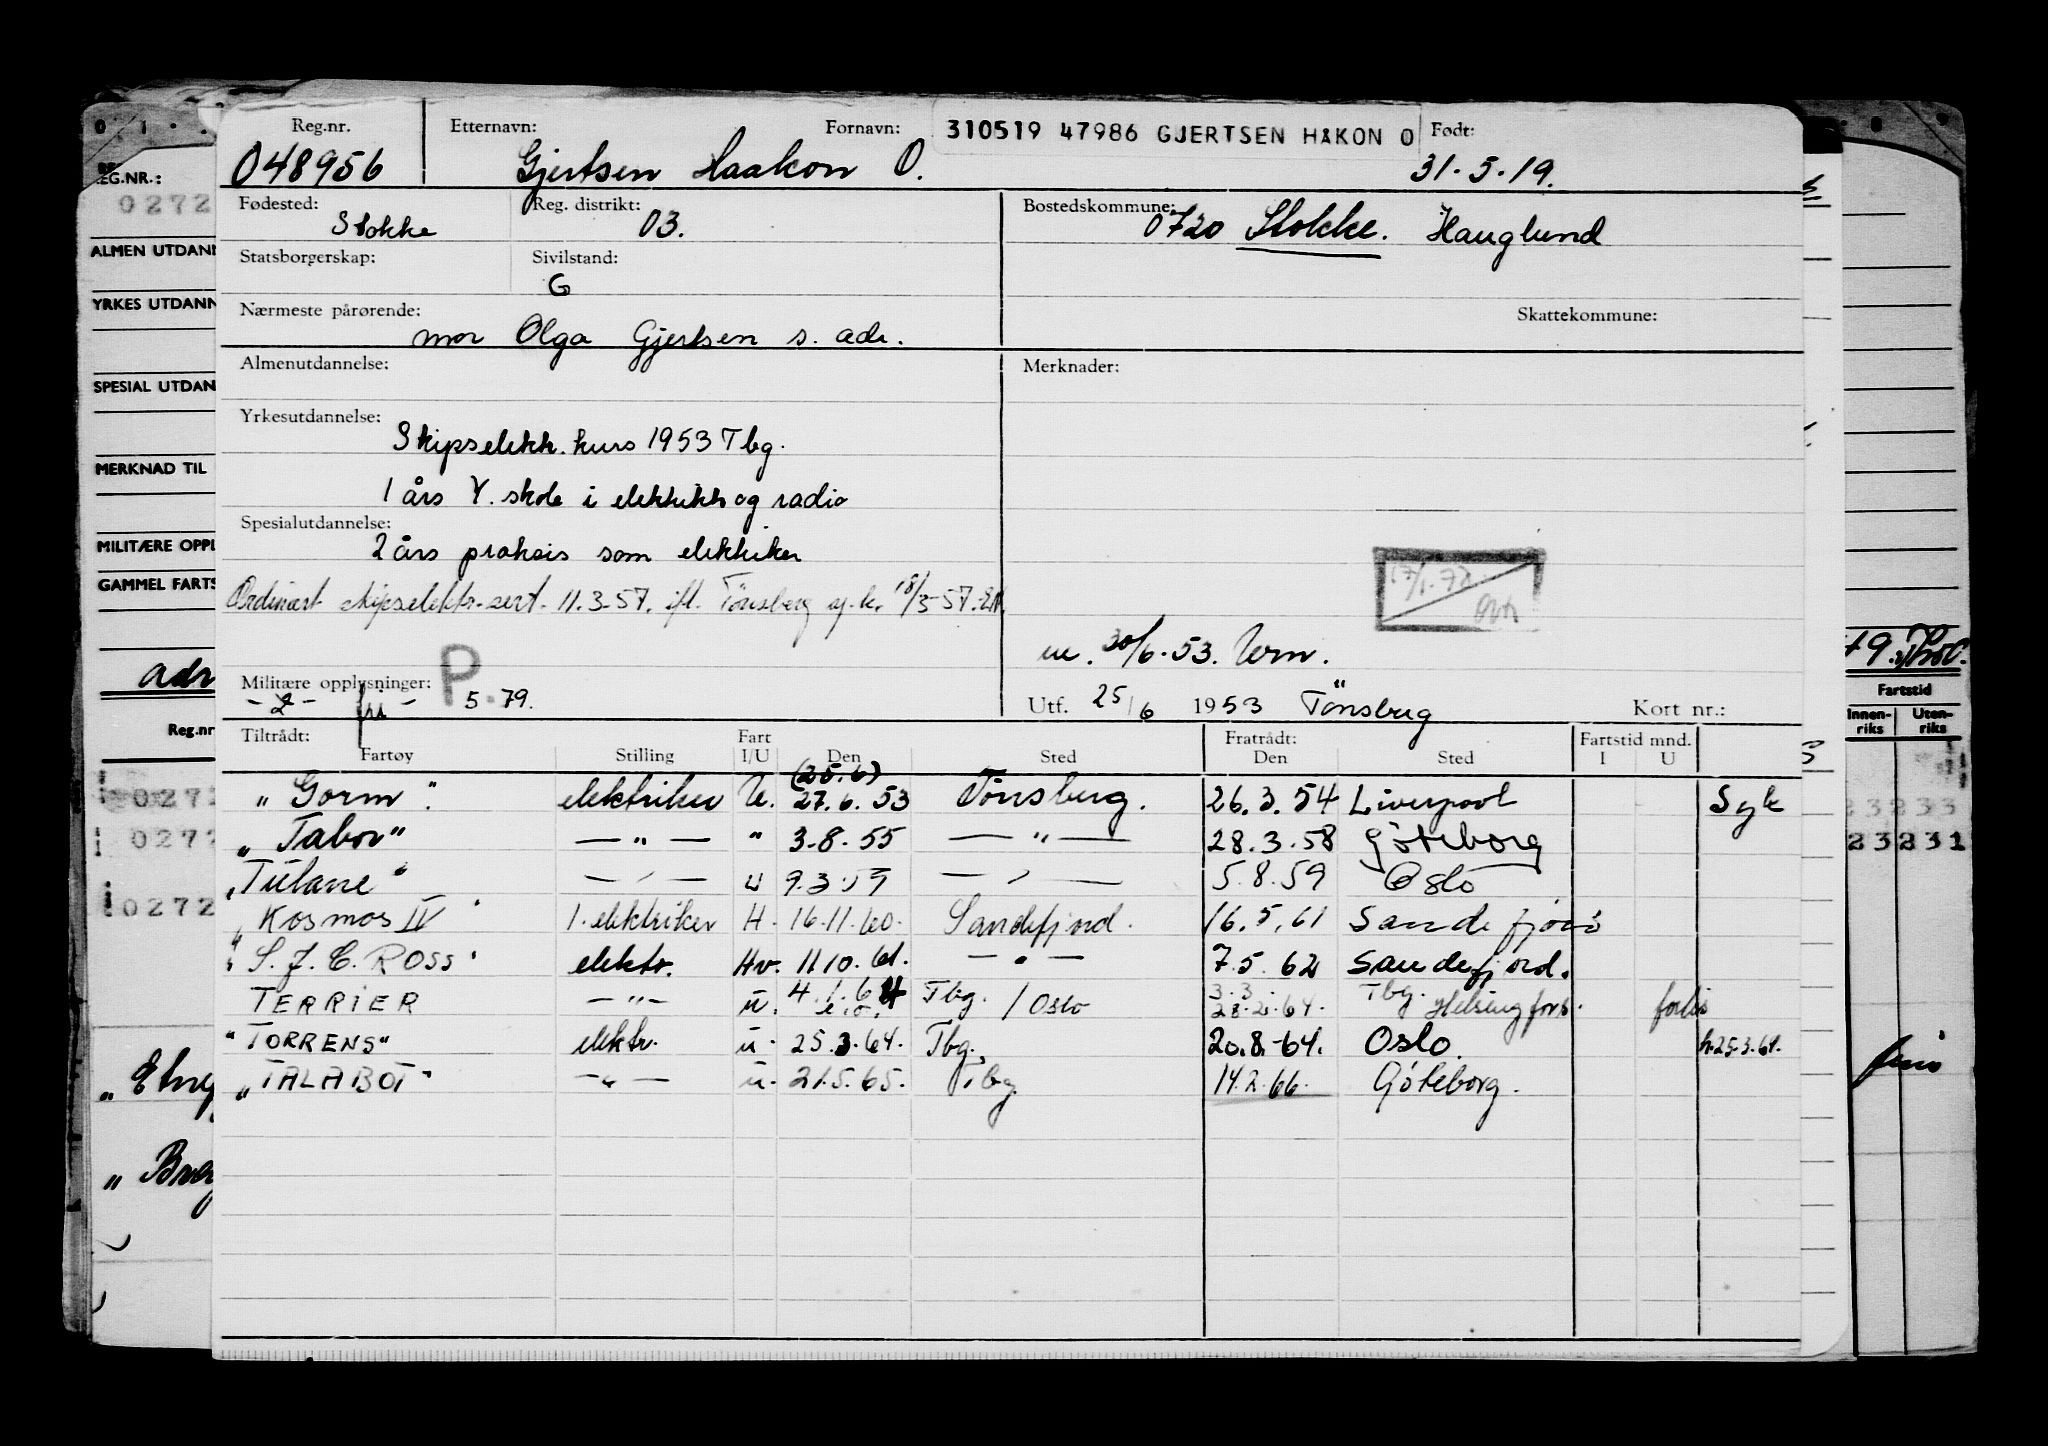 Reg.nr. Etternavn: Fornavn: 310519 47986 GJERTSEN HAKON O Født:
048956 Gjertsen Haakon O. 31.5.19.
Fødested: Stokke Reg. distrikt: 03. Bostedskommune: 0720 Stokke. Hauglund
Statsborgerskap: Sivilstand: G
Nærmeste pårørende: mor Olga Gjertsen s. adr. Skattekommune:
Almenutdannelse: Merknader:
Yrkesutdannelse:
Skipselekk. kurs 1953 Tbg.
1 års Y. skole i elektrikk og radio
Spesialutdannelse:
2 års praksis som elektriker
Ordinært skipselektr-sert. 11.3-57. ifl. Tønsberg sj.k. 18/3-57.
17/1.72
30/6.53.
Militære opplysninger: P
-2- fri - 5.79.
Utf. 25/6 1953 Tönsberg Kort nr.:
Tiltrådt: Fart Fratrådt: Fartstid mnd.
Fartøy Stilling I/U Den Sted Den Sted I U
(25.6)
"Gorm". elektriker U. 27.6.53 Tönsberg. 26.3.54 Liverpool Syk
"Tabor" — " — " 3.8.55 — " — 28.3.58 Göteborg
"Tulane" — " — U 9.3.59 — " — 5.8.59 Oslo
"Kosmos IV" 1. elektriker H. 16.11.60. Sandefjord. 16.5.61 Sandefjord
"S.J.E. ROSS" elektr. Hv. 11.10.61. — " — 7.5.62 Sandefjord.
TERRIER — " — u. 4.1.64 Tbg. / Oslo 3.3. 28.2.64. Tbg. Helsingfors. forlis
"TORRENS" elektr. u. 25.3.64. Tbg. 20.8.-64. Oslo. h.25.3.64.
"TALABOT" — " — u. 21.5.65. Tbg. 14.2.66. Göteborg.
REG.NR.:
0272
ALMEN UTDANN
YRKES UTDANN
SPESIAL UTDAN
MERKNAD TIL
MILITÆRE OPPL
GAMMEL FARTS
adr
Reg.nr
0272
0272
0272
Fartstid
Innen-riks Uten-riks
23233
23231